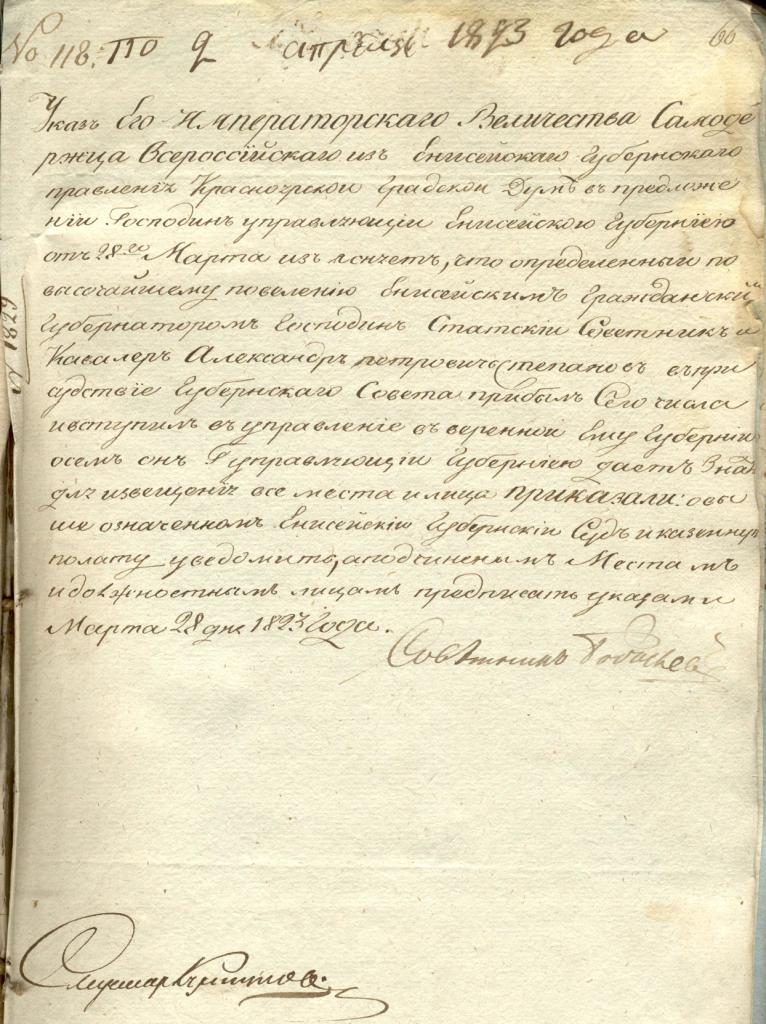 № 118. по 2 апреля 1823 года 66
Указъ Его Императорскаго Величества Самоде
ржца Всероссійскаго изъ Енисейскаго Губернскаго
правленія Красноярской градской Думѣ въ предложе
ніи Господинъ управляющій Енисейскою Губерніею
отъ 28го Марта изъясняетъ, что определенный по
высочайшему повеленію Енисейскимъ Гражданский
Губернаторомъ Господинъ Статскій Советникъ и
Кавалеръ Александръ петровичь Степановъ въ при
судствіе Губернскаго Совета прибылъ Сего числа
и вступилъ въ управленіе въверенной Ему Губерніи
осемъ онъ Г управляющій Губерніею даетъ Знать
для извещенія все места и лица приказали: о вы
ше означенномъ Енисейскій Губернскій Судъ и казенную
полату уведомить, а подчиненымъ Местамъ
и должностнымъ лицамъ предписать указами
Марта 28 дня 1823 Года.
Совѣтникъ